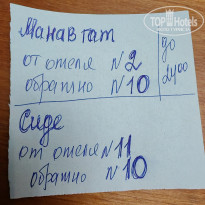 TOP HOTELS
Манавгат
от отеля N2
обратно N10
до
24⁰⁰
Сиде
от отеля N11
обратно N10